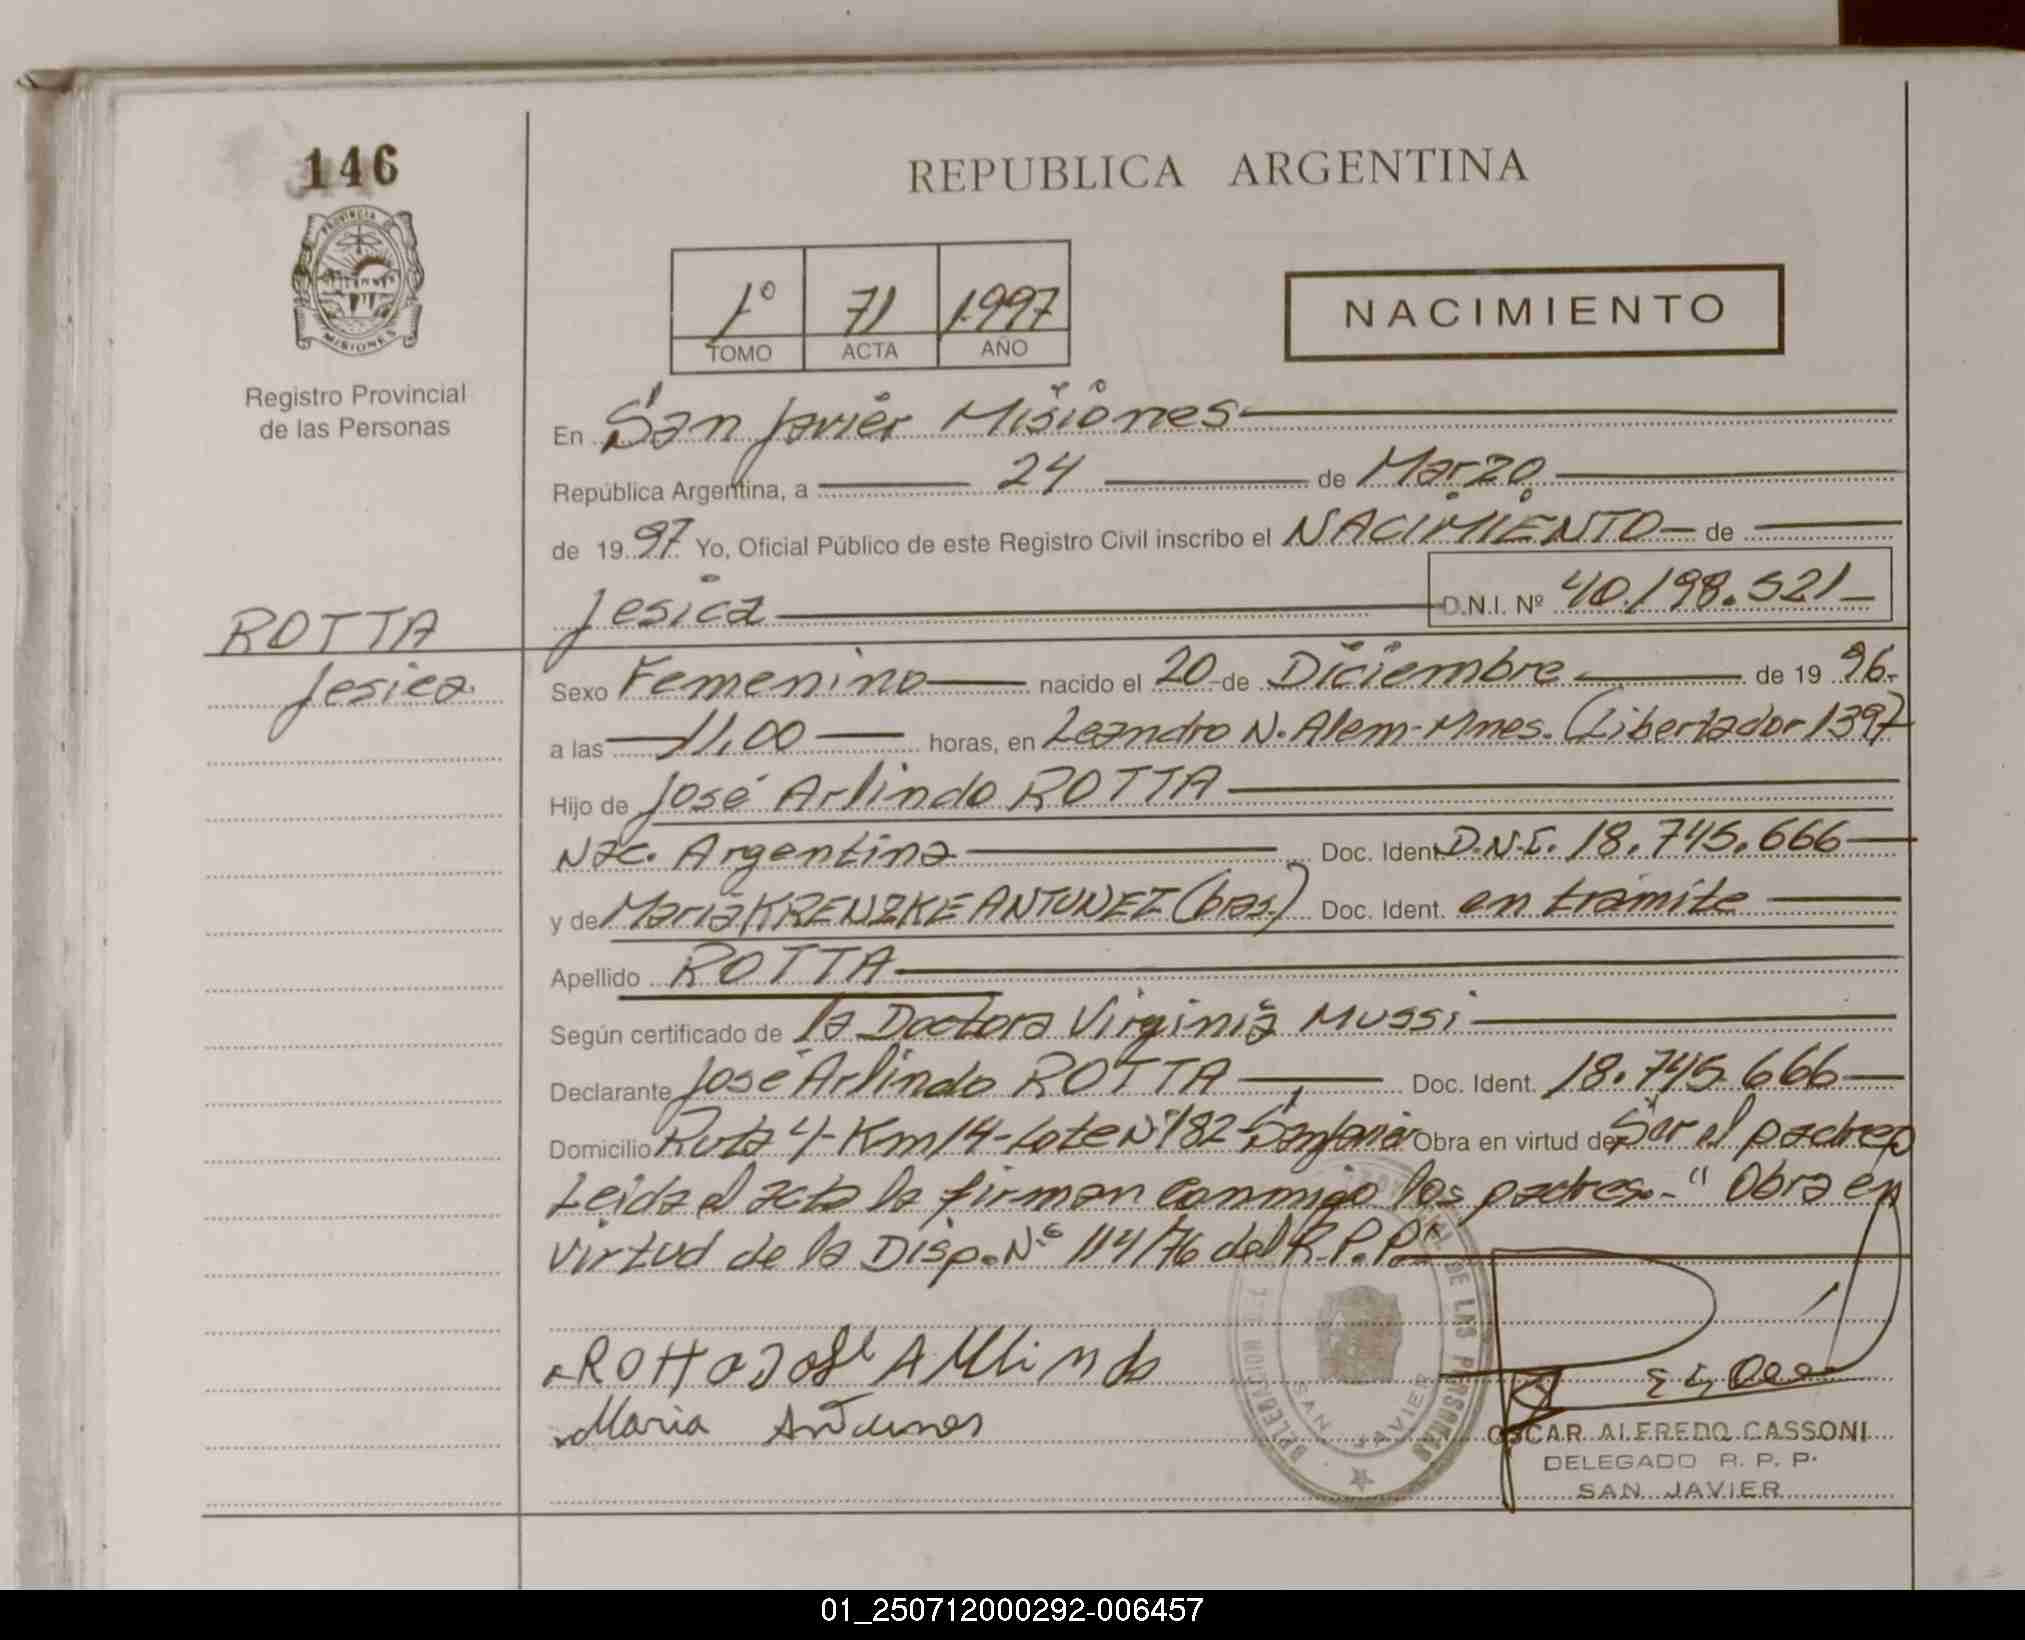 146
PROVINCIA
MISIONES
Registro Provincial
de las Personas
ROTTA
Jesica
REPUBLICA ARGENTINA
1º 71 1997
TOMO ACTA AÑO
NACIMIENTO
En San Javier Misiones
República Argentina, a 24 de Marzo
de 1997 Yo, Oficial Público de este Registro Civil inscribo el NACIMIENTO de
Jesica D.N.I. Nº 40.198.521
Sexo Femenino nacido el 20 de Diciembre de 1996.
a las 11,00 horas, en Leandro N. Alem-Mnes. (Libertador 139)
Hijo de José Arlindo ROTTA
Nac. Argentina Doc. Ident. D.N.I. 18.745.666
y de Maria KRENZKE ANTUNEZ (bras.) Doc. Ident. en trámite
Apellido ROTTA
Según certificado de la Doctora Virginia Mussi
Declarante José Arlindo ROTTA Doc. Ident. 18.745.666
Domicilio Ruta 4-Km 14-Lote Nº 182-San Javier Obra en virtud de Ser el padre
Leida el acta la firman conmigo los padres.-" Obra en
virtud de la Disp. Nº 114/76 del R.P.P."
ROTTA José ARLindo
Maria Antunes
DELEGACION DE LAS PERSONAS
SAN JAVIER
OSCAR ALFREDO CASSONI
DELEGADO R. P. P.
SAN JAVIER
01_250712000292-006457